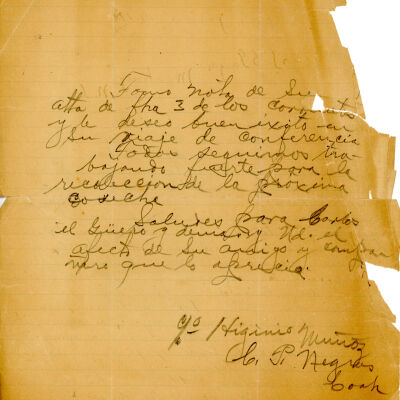 Tomo nota de su
atta de fha 3 de los corrientes
y le deseo buen exito en
su viaje de conferencia
Todos seguimos tra-
bajando fuerte para la
recoleccion de la proxima
cosecha
Saludes para Carlos
el Güero y demas y Ud. el
afecto de su amigo y compan
nero que lo aprecia.
Higinio Muñoz
C. P. Negras
Coah